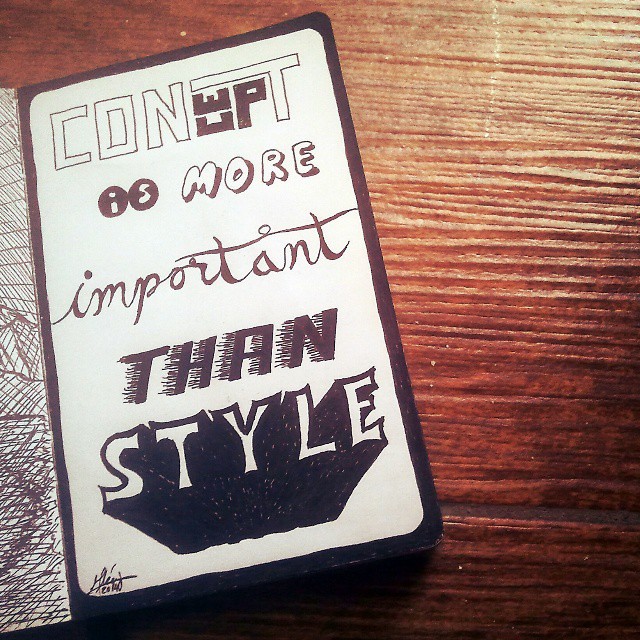 CONCEPT
is MORE
important
THAN
STYLE